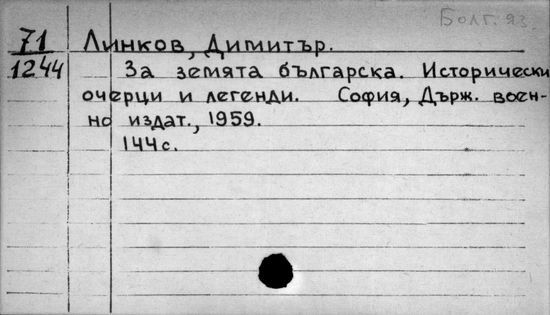 Болг. яз.
71 Линков, Димитър.
1244 За земята българска. Исторически
очерци и легенди. София, Държ. воен-
но издат., 1959.
144 с.